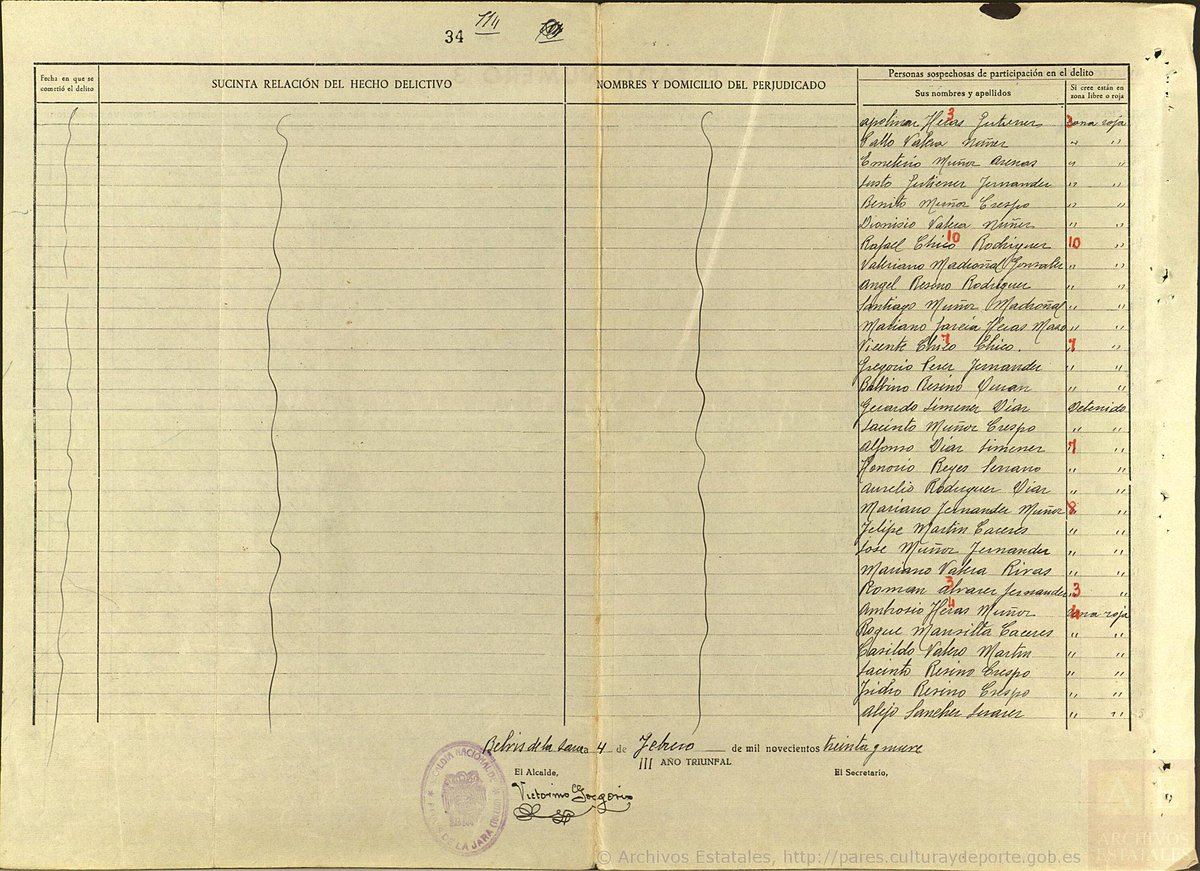 34 114
Fecha en que se cometió el delito
SUCINTA RELACIÓN DEL HECHO DELICTIVO
NOMBRES Y DOMICILIO DEL PERJUDICADO
Personas sospechosas de participación en el delito
Sus nombres y apellidos
Si cree están en zona libre o roja
Apolinar Heras Gutierrez 3 zona roja
Pablo Valera Nuñez " "
Emeterio Muñoz Arenas " "
Justo Gutierrez Fernandez " "
Benito Muñoz Crespo " "
Dionisio Valera Nuñez " "
Rafael Chico Rodriguez 10 10 "
Valeriano Madroñal Gonzalez " "
Angel Resino Rodriguez " "
Santiago Muñoz Madroñal " "
Mariano Garcia Heras Mazo " "
Vicente Chico Chico. 7 7 "
Gregorio Perez Fernandez " "
Balbino Resino Duran " "
Gerardo Jimenez Diaz Detenido
Jacinto Muñoz Crespo " "
Alfonso Diaz Jimenez 7 "
Honorio Reyes Serrano " "
Aurelio Rodriguez Diaz " "
Mariano Fernandez Muñoz 8 "
Felipe Martin Caceres " "
Jose Muñoz Fernandez " "
Mariano Valera Rivas " "
Roman Alvarez Fernandez 3 3 "
Ambrosio Heras Muñoz 4 4 zona roja
Roque Mansilla Caceres " "
Casildo Valero Martin " "
Jacinto Resino Crespo " "
Isidro Resino Crespo " "
Alejo Sanchez Suarez " "
Belvis de la Jara a 4 de Febrero de mil novecientos treinta y nueve
III AÑO TRIUNFAL
El Alcalde,
El Secretario,
Victorino Gregorio
ALCALDIA NACIONAL DE BELVIS DE LA JARA (TOLEDO)
© Archivos Estatales, http://pares.culturaydeporte.gob.es
ARCHIVOS ESTATALES